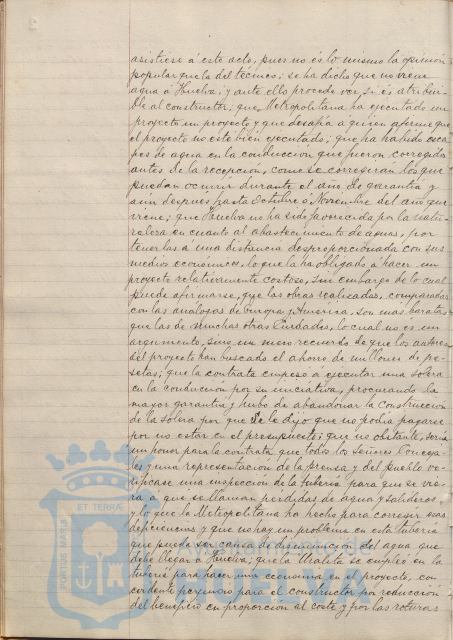 asistiese á este acto, pues no és lo mismo la opinión
popular que la del técnico; se ha dicho que no viene
agua á Huelva; y ante ello procede ver, si és atribui-
ble al constructor; que Metropolitana ha ejecutado un
proyecto en proyecto y que desafía a quien afirme que
el proyecto no esté bién ejecutado; que ha habido esca
pes de agua en la conducción que fueron corregidos
antes de la recepción, como se corregiran los que
puedan ocurrir durante el año de garantia y
aún después hasta Octubre ó Noviembre del año que
viene; que Huelva no ha sido favorecida por la natu-
raleza en cuanto al abastecimiento de aguas, por
tenerlas á una distancia desproporcionada con sus
medios económicos, lo que la ha obligado á hacer un
proyecto relativamente costoso, sin embargo de lo cual
puede afirmarse, que las obras realizadas, comparadas
con las análogas de Europa y América, son más baratas
que las de muchas otras Ciudades, lo cual no es un
argumento, sino un mero recuerdo de que los autores
del proyecto han buscado el ahorro de millones de pe-
setas; que la contrata empezó á ejecutar una solera
en la conducción por su iniciativa, procurando la
mayor garantia y hubo de abandonar la construcción
de la solera por que se le dijo que no podia pagarse
por no estar en el presupuesto; que no obstante, seria
un honor para la contrata que todos los señores Conceja-
les y una representación de la prensa y del pueblo ve-
rificase una inspección de la tuberia para que se vie-
ra á que se llaman perdidas de agua y salideros
y lo que la Metropolitana ha hecho para corregir esas
deficiencias y que no hay un problema en esta tuberia
que pueda ser causa de disminución del agua que
debe llegar a Huelva; que la Uralita se empleó en la
tuberia para hacer una economia en el proyecto, con
evidente perjuicio para el constructor por reducción
del beneficio en proporción al coste y por las roturas
PORTUS MARIS
ET TERRAE
Ayuntamiento de
HUELVA